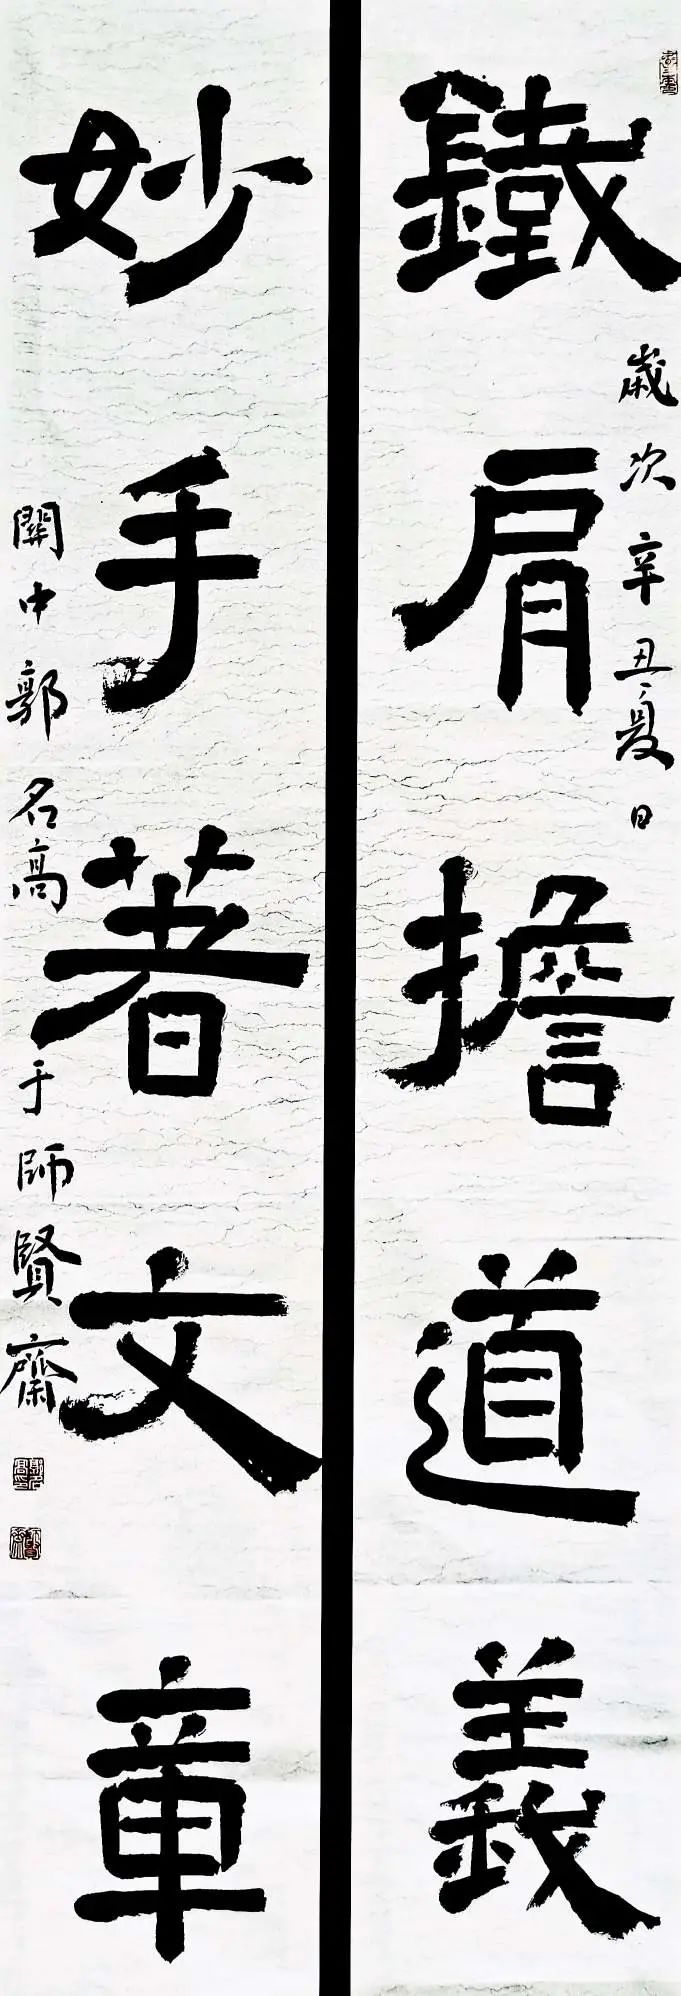 鐵肩擔道義
歲次辛丑夏日
妙手著文章
關中郭名高于師賢齋